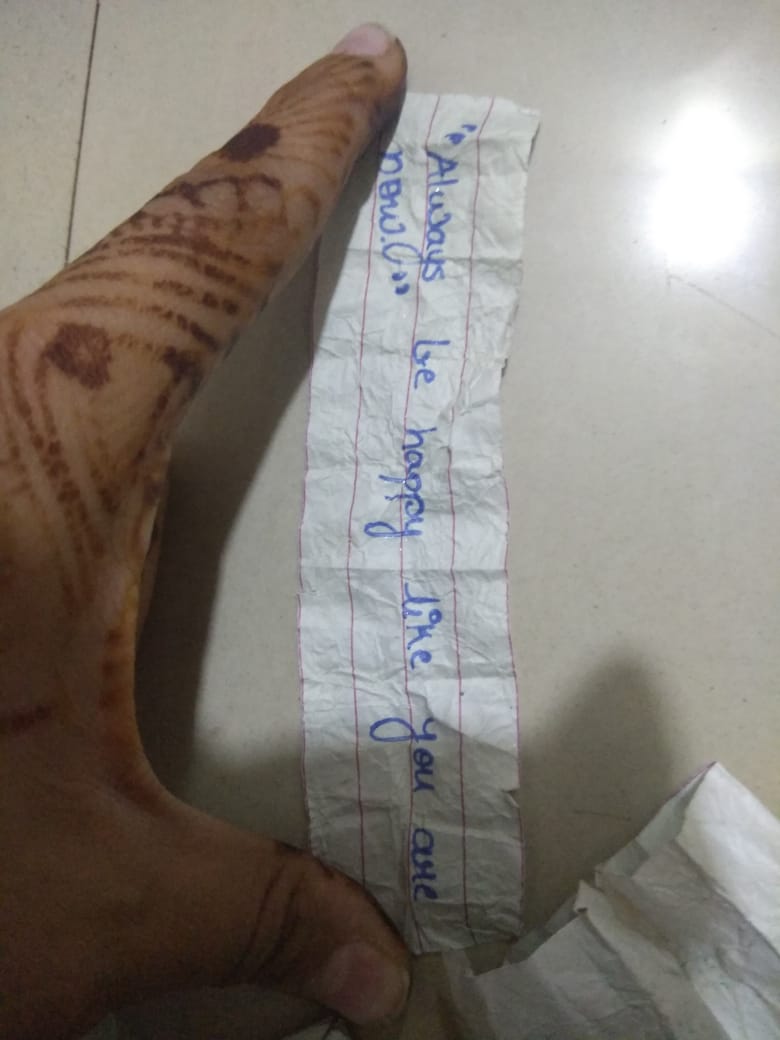 "Always be happy like you are
now.()"